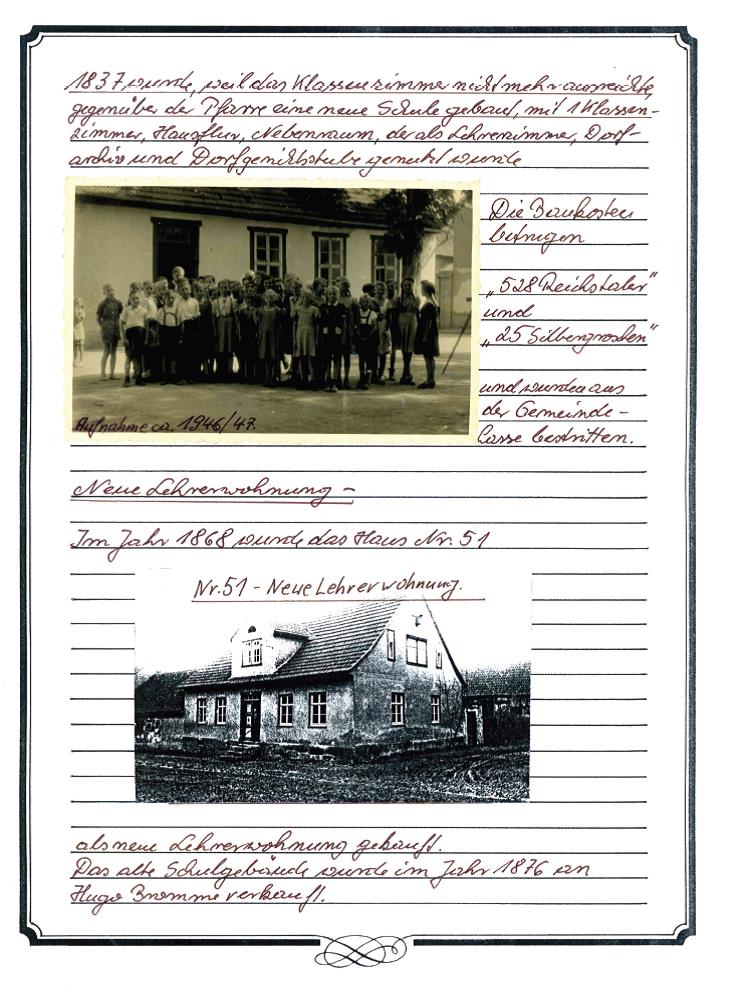 1837 wurde, weil das Klassenzimmer nicht mehr ausreichte,
gegenüber der Pfarre eine neue Schule gebaut, mit 1 Klassen-
zimmer, Hausflur, Nebenraum, der als Lehrerzimmer, Dorf-
archiv und Dorfgerichtsstube genutzt wurde
Die Baukosten
betrugen
„528 Reichstaler"
und
„25 Silbergroschen"
und wurden aus
der Gemeinde-
Casse bestritten.
Aufnahme ca. 1946/47
Neue Lehrerwohnung -
Im Jahr 1868 wurde das Haus Nr. 51
Nr. 51 - Neue Lehrerwohnung.
als neue Lehrerwohnung gekauft.
Das alte Schulgebäude wurde im Jahr 1876 an
Hugo Bromme verkauft.